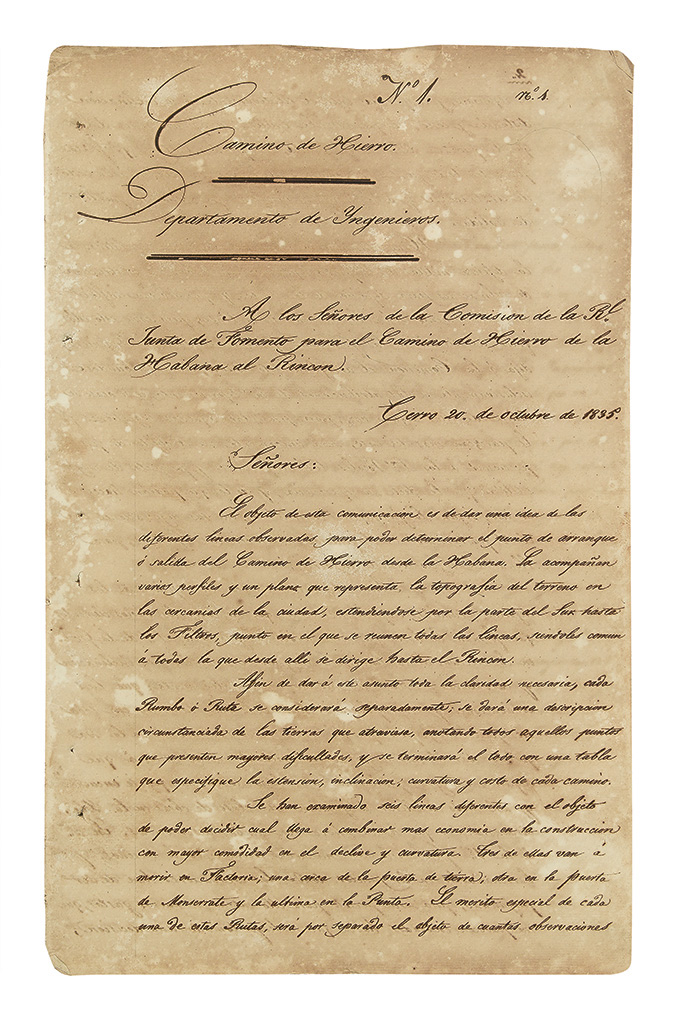 Nº 1.
2.
nº 1.
Camino de Hierro.
Departamento de Yngenieros.
A los Señores de la Comision de la Rl.
Junta de Fomento para el Camino de Hierro de la
Habana al Rincon.
Cerro 20. de octubre de 1835.
Señores:
El objeto de esta comunicacion es de dar una idea de las
diferentes lineas observadas para poder determinar el punto de arranque
ó salida del Camino de Hierro desde la Habana. La acompañan
varios perfiles y un plano que representa la topografia del terreno en
las cercanias de la ciudad, estendiendose por la parte del Sur hasta
los Filtros, punto en el que se reunen todas las lineas, siendoles comun
á todas la que desde alli se dirige hasta el Rincon.
Afin de dar á este asunto toda la claridad necesaria, cada
Rumbo ó Ruta se considerará separadamente; se dará una descripcion
circunstanciada de las tierras que atraviesa, anotando todos aquellos puntos
que presenten mayores dificultades, y se terminará el todo con una tabla
que especifique la estension, inclinacion, curvatura y costo de cada camino.
Se han examinado seis lineas diferentes con el objeto
de poder decidir cual llega á combinar mas economia en la construccion
con mayor comodidad en el declive y curvatura. Tres de ellas van á
morir en Factoria; una cerca de la puerta de tierra; otra en la puerta
de Monserrate y la ultima en la Punta. El merito especial de cada
una de estas Rutas, será por separado el objeto de cuantas observaciones